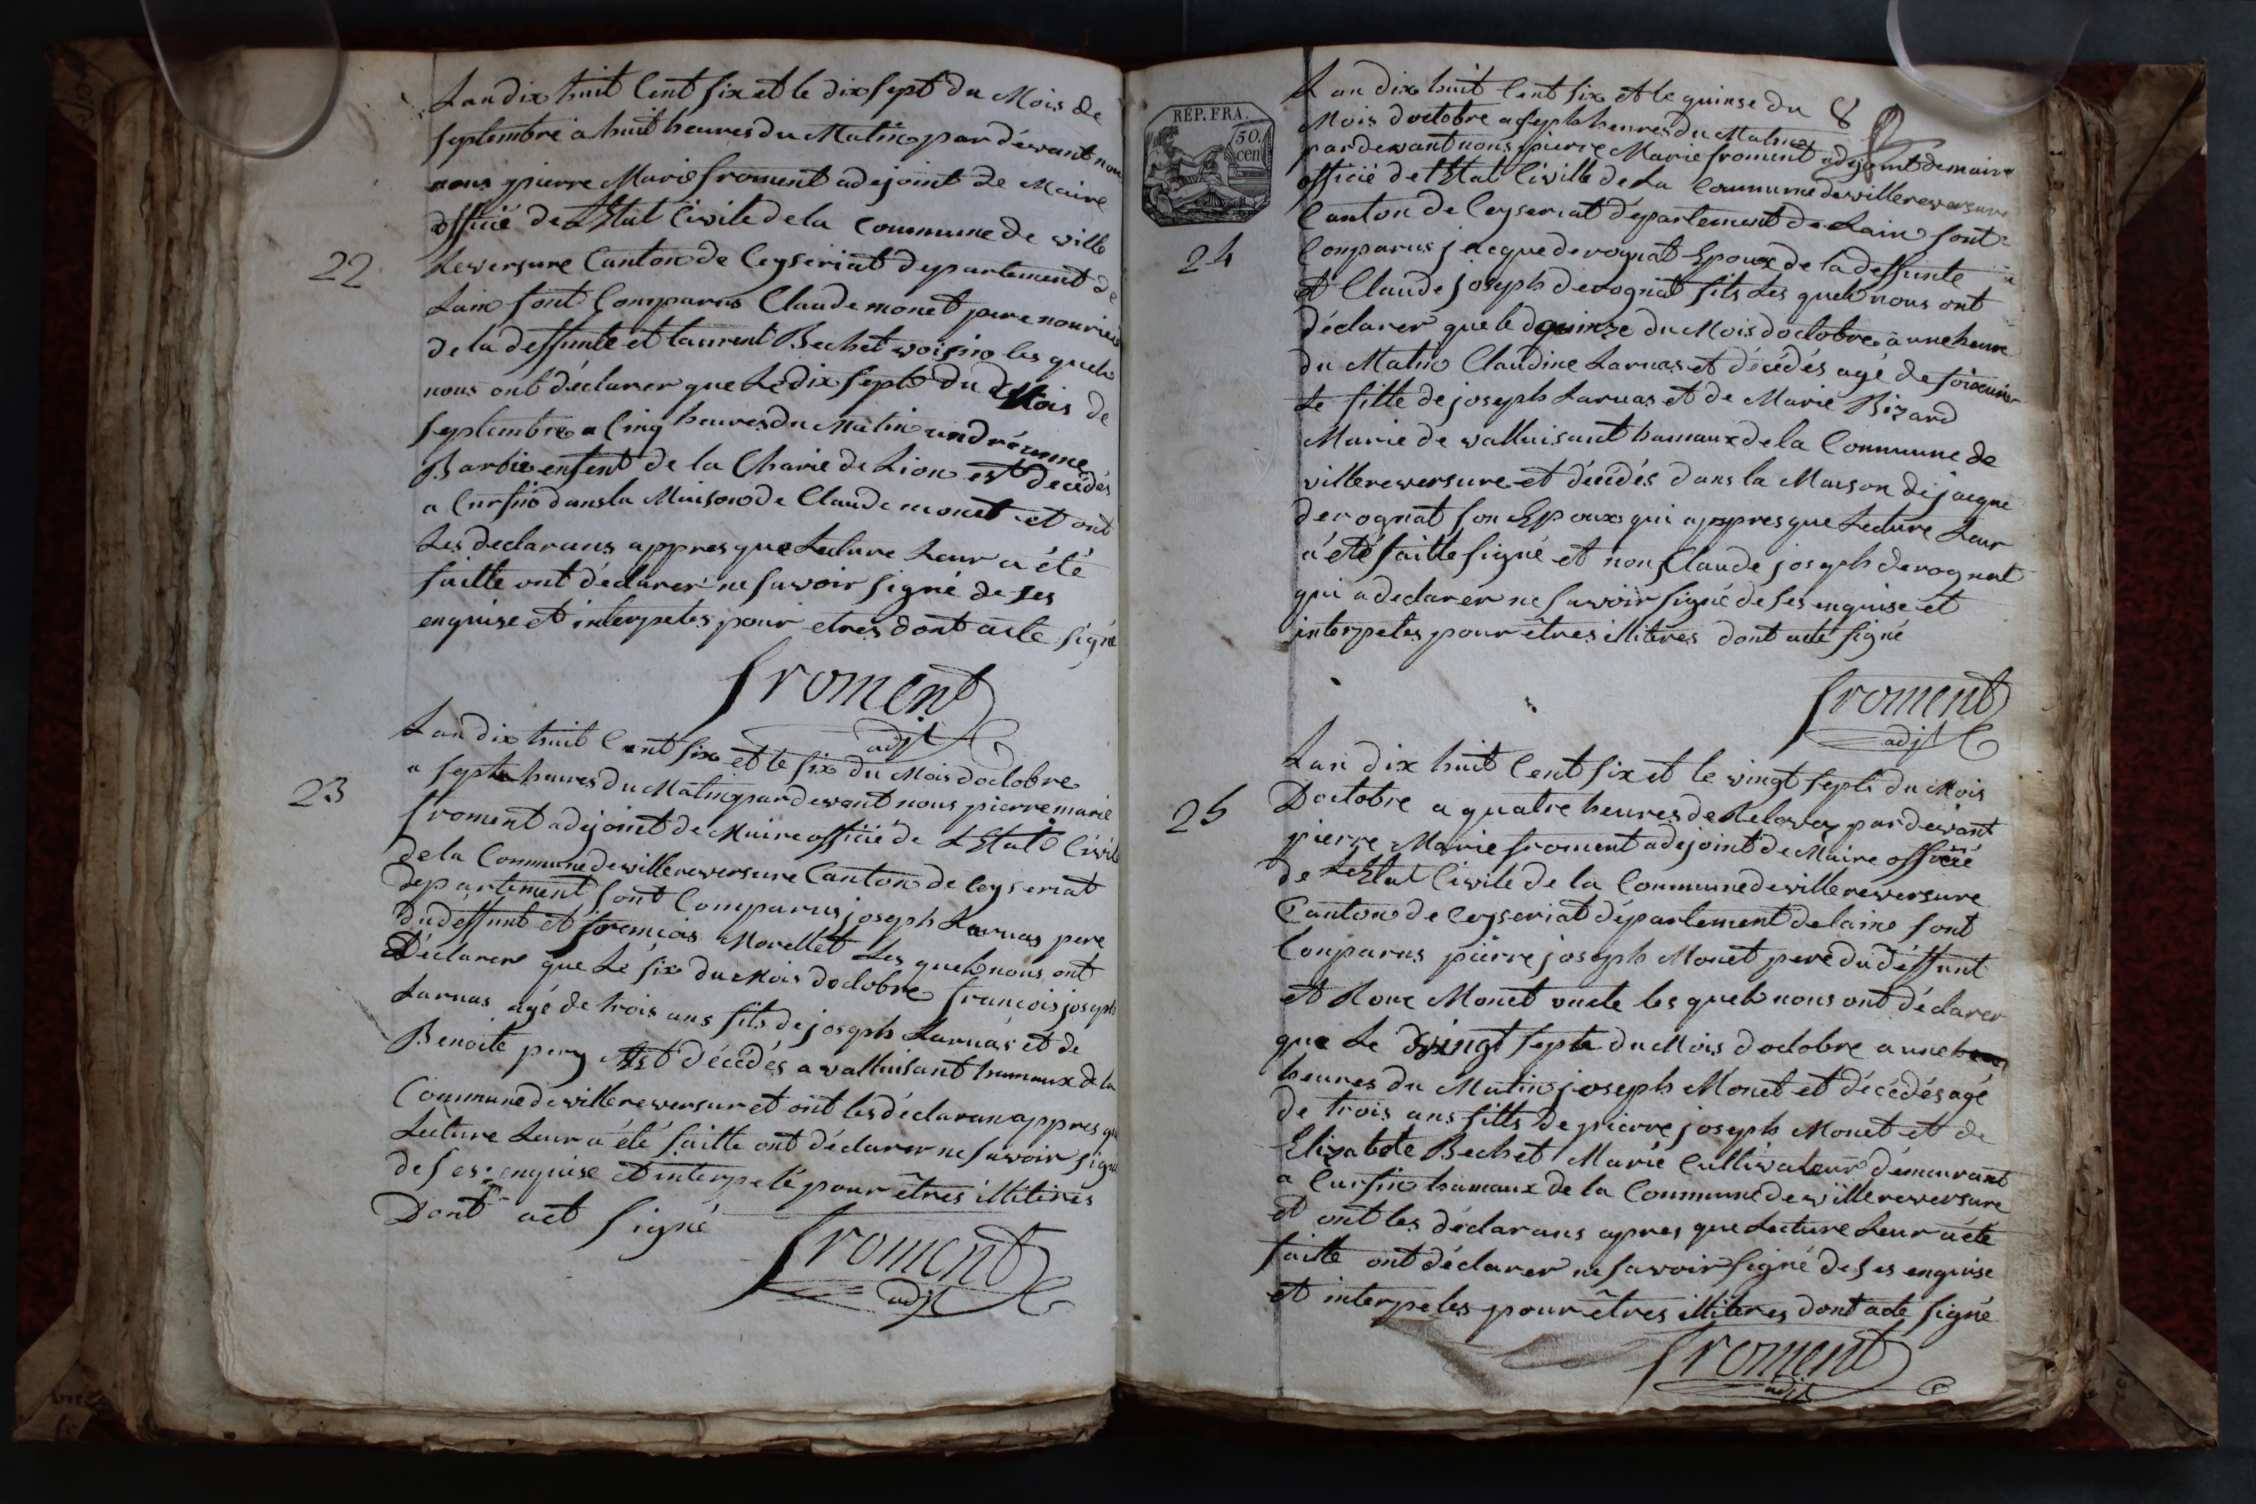 Lan dix huit Cent six et le dix sept du Mois de
septembre a huit heures du Matin par dévant nou
nous pierre Marie froment adejoint de Maire
officié de L'Etat Civile de la Commune de ville
22
Reversure Canton de Ceyseriat departement de
Lain sont Comparus Claude monet pere nouricié
de la deffunte et laurent Bechet voisin les quels
nous ont déclarer que Le dix sept du Mois de
septembre a Cinq heures du Matin andréanne
Barbie enfent de la Charie de Lion est décédés
a Cursin dans la Maison de Claude monet et ont
Les declarans appres que Lecture Leur a été
faitte ont déclarer ne savoir signé de ses
enquise et interpetes pour etres dont acte signé
froment
adjt
Lan dix huit Cent six et le six du Mois doctobre
23
a septe heures du Matin par devant nous pierre marie
froment adejoint de Maire officié de L'Etat Civil
de la Commune de villereversure Canton de Ceyseriat
departement sont Comparus joseph Larnas pere
du deffunt et francois Morellet Les quels nous ont
Déclarer que Le six du Mois doctobre francois joseph
Larnas agé de trois ans fils de joseph Larnas et de
Benoite pery Est décédés a valluisant hamaux de la
Commune de villereversur et ont les déclaran appres que
Lecture Leur a été faitte ont déclarer ne savoir signé
de ses enquise et interpelé pour êtres illitires
Dont act signé
froment
adjt
RÉP. FRA.
50.
cen
8
Lan dix huit Cent six et le quinse du
Mois doctobre a septe heures du Matin
par devant nous pierre Marie froment adejoint de maire
officié de L'Etat Civille de La Commune de villereversure
Canton de Ceyseriat département de Lain sont
24
Comparus jacque derognat Epoux de la deffunte
et Claude joseph derognat fils Les quels nous ont
déclarer que le quinze du Mois doctobre a une heure
du Matin Claudine Larnas et décédés agé de soixante
Le fille de joseph Larnas et de Marie Bizard
Marie de valluisant hamaux de la Commune de
villereversure et décédés dans la Maison de jacque
derognat son Epoux qui appres que Lecture Leur
a été faitte signé et non Claude joseph derognat
qui a declarer ne savoir signé de ses enquise et
interpetes pour êtres illitires dont acte signé
froment
adjt
Lan dix huit Cent six et le vingt septe du Mois
25
Doctobre a quatre heures de Relevez par devant
pierre Marie froment adejoint de Maire officié
de L'Etat Civile de la Commune de villereversure
Canton de Ceyseriat département de laine sont
Comparus pierre joseph Monet pere du deffunt
et Roux Monet oncle les quels nous ont déclarer
que Le vingt septe du Mois doctobre a une
heures du Matin joseph Monet et décédés agé
de trois ans fills de pierre joseph Monet et de
Elizabete Bechet Marié Cultivateur démeurant
a Cursin hamaux de la Commune de villereversure
et ont les déclarans apres que Lecture Leur a été
faitte ont déclarer ne savoir signé de ses enquise
et interpeles pour êtres illiteres dont acte signé
froment
adjt